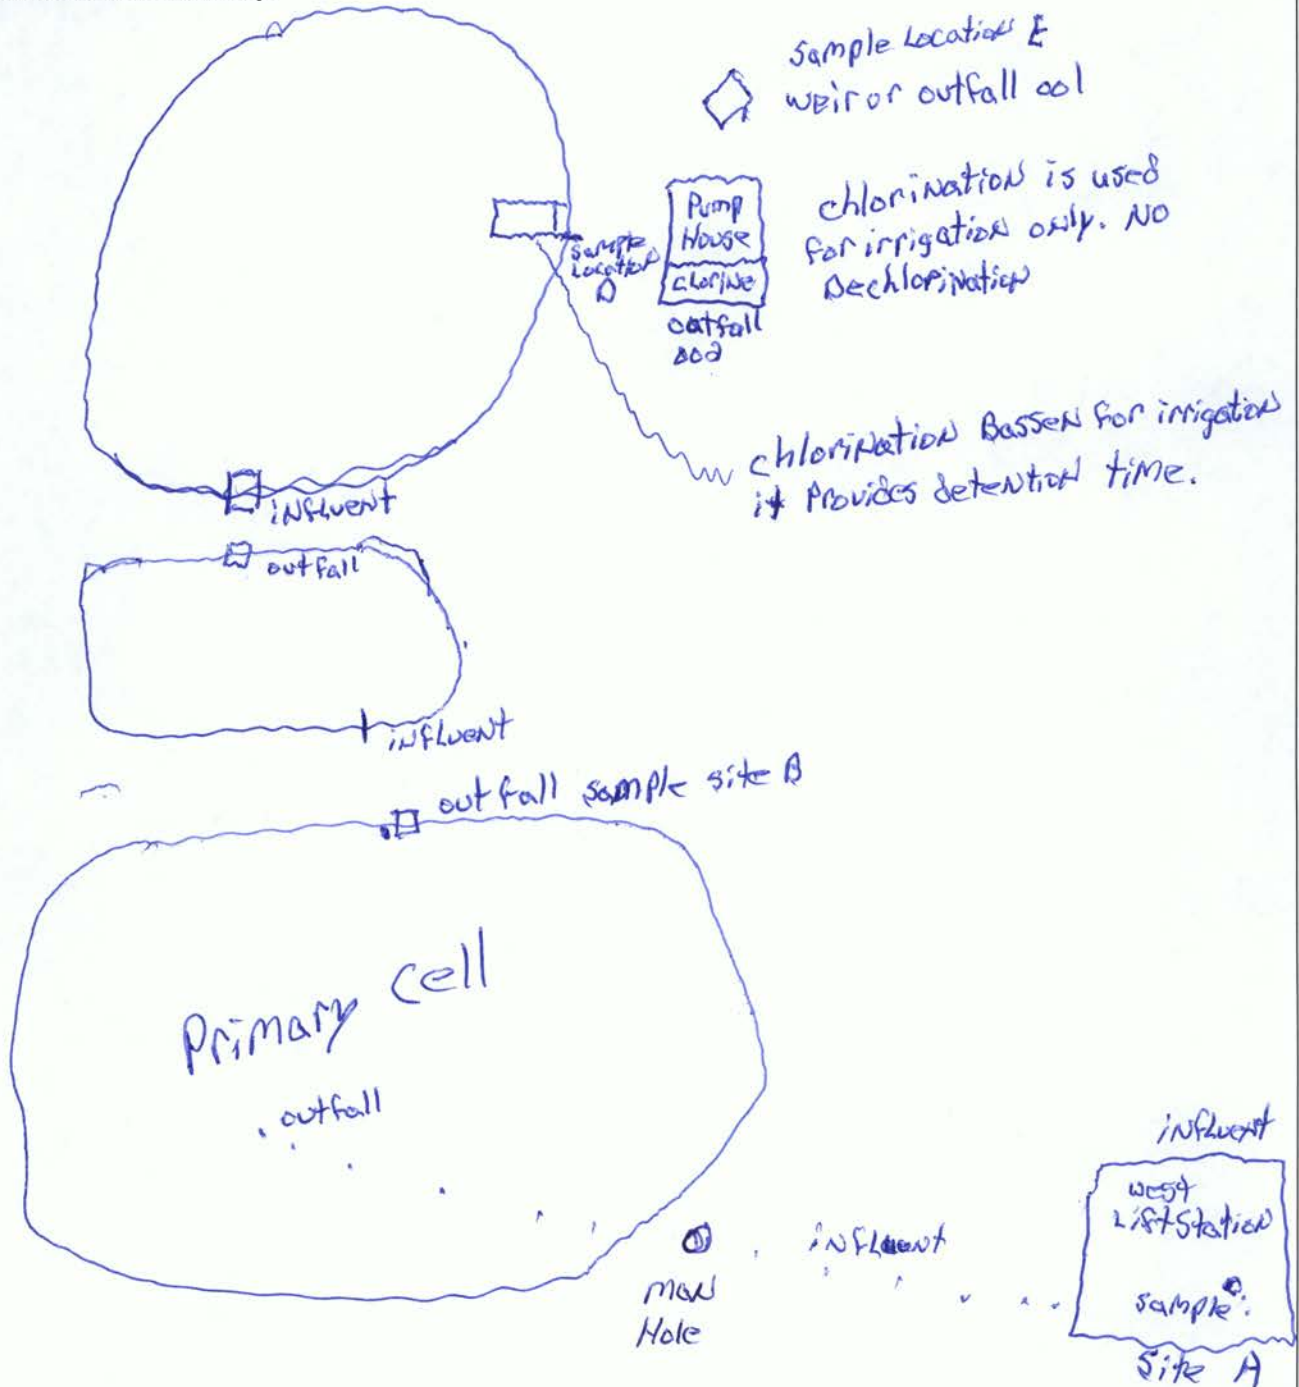 Sample Location E
weir or outfall 001
Pump
House
chlorine
outfall
002
chlorination is used
for irrigation only. No
Dechlorination
Sample
Location
D
chlorination Bassen for irrigation
it Provides detention time.
influent
outfall
influent
outfall sample site B
Primary cell
outfall
influent
Man
Hole
influent
west
Lift Station
sample
Site A